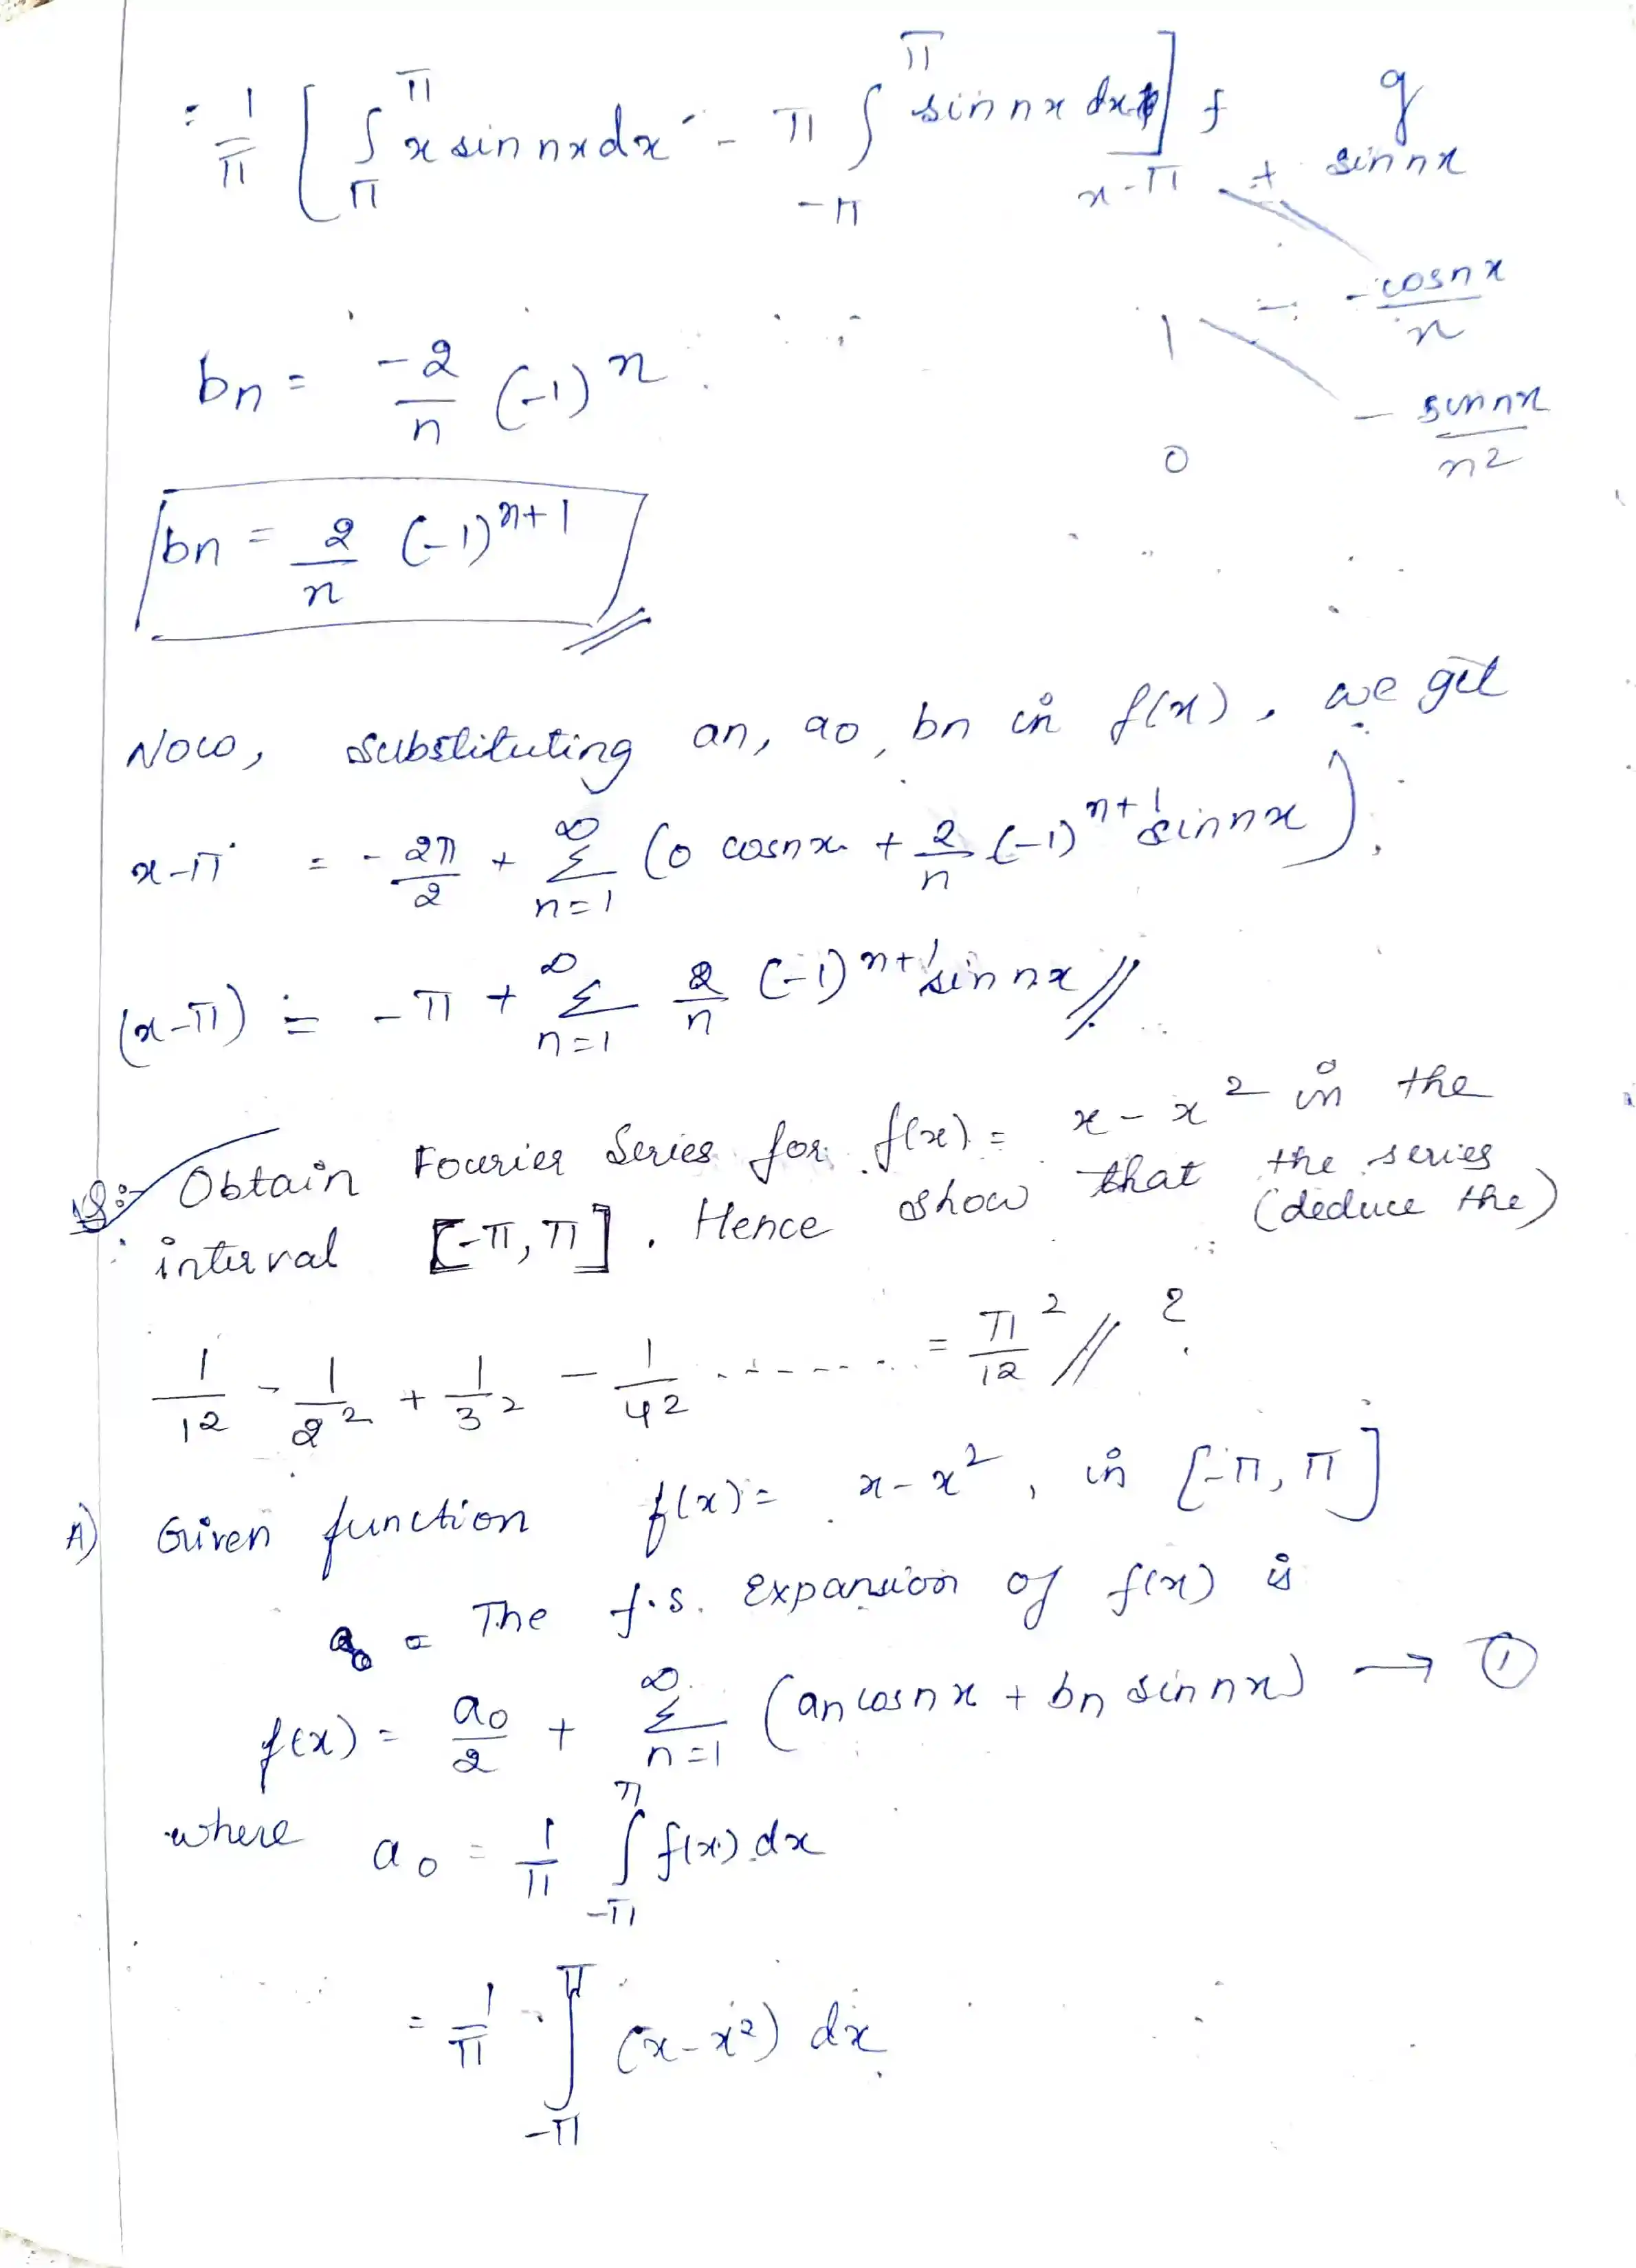 = 1/π [ ∫_π^π x sin nx dx - π ∫_{-π}^π sin nx dx ] f g
x-π + sin nx
1 - -cos nx/n
0 - sin nx/n²
bn = -2/n (-1)^n
bn = 2/n (-1)^{n+1}
Now, substituting an, a0, bn in f(x), we get
x-π = -2π/2 + Σ_{n=1}^∞ (0 cosnx + 2/n (-1)^{n+1} sin nx)
(x-π) = -π + Σ_{n=1}^∞ 2/n (-1)^{n+1} sin nx //
Obtain Fourier Series for f(x) = x - x² in the
interval [-π, π]. Hence show that the series
(deduce the)
1/1² - 1/2² + 1/3² - 1/4² ........ = π²/12 // ?
A) Given function f(x) = x - x², in [-π, π]
= The f.s. Expansion of f(x) is
f(x) = a0/2 + Σ_{n=1}^∞ (an cosnx + bn sin nx) → ①
where a0 = 1/π ∫_{-π}^π f(x) dx
= 1/π ∫_{-π}^π (x - x²) dx